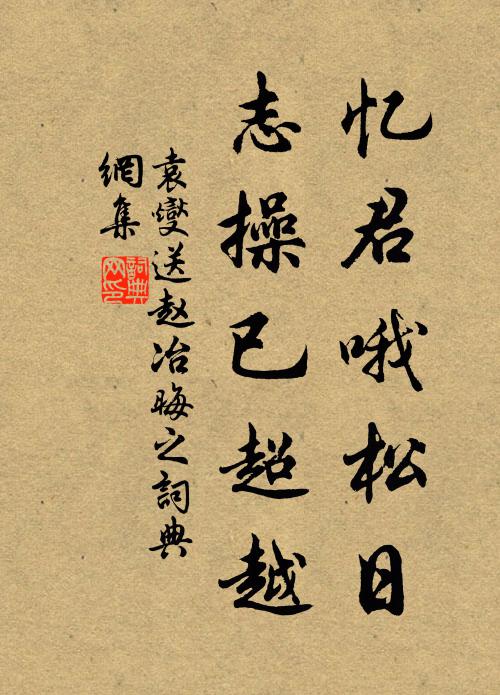 忆君哦松日
志操已超越
袁燮送赵冶晦之词典
網集
詞典
网印